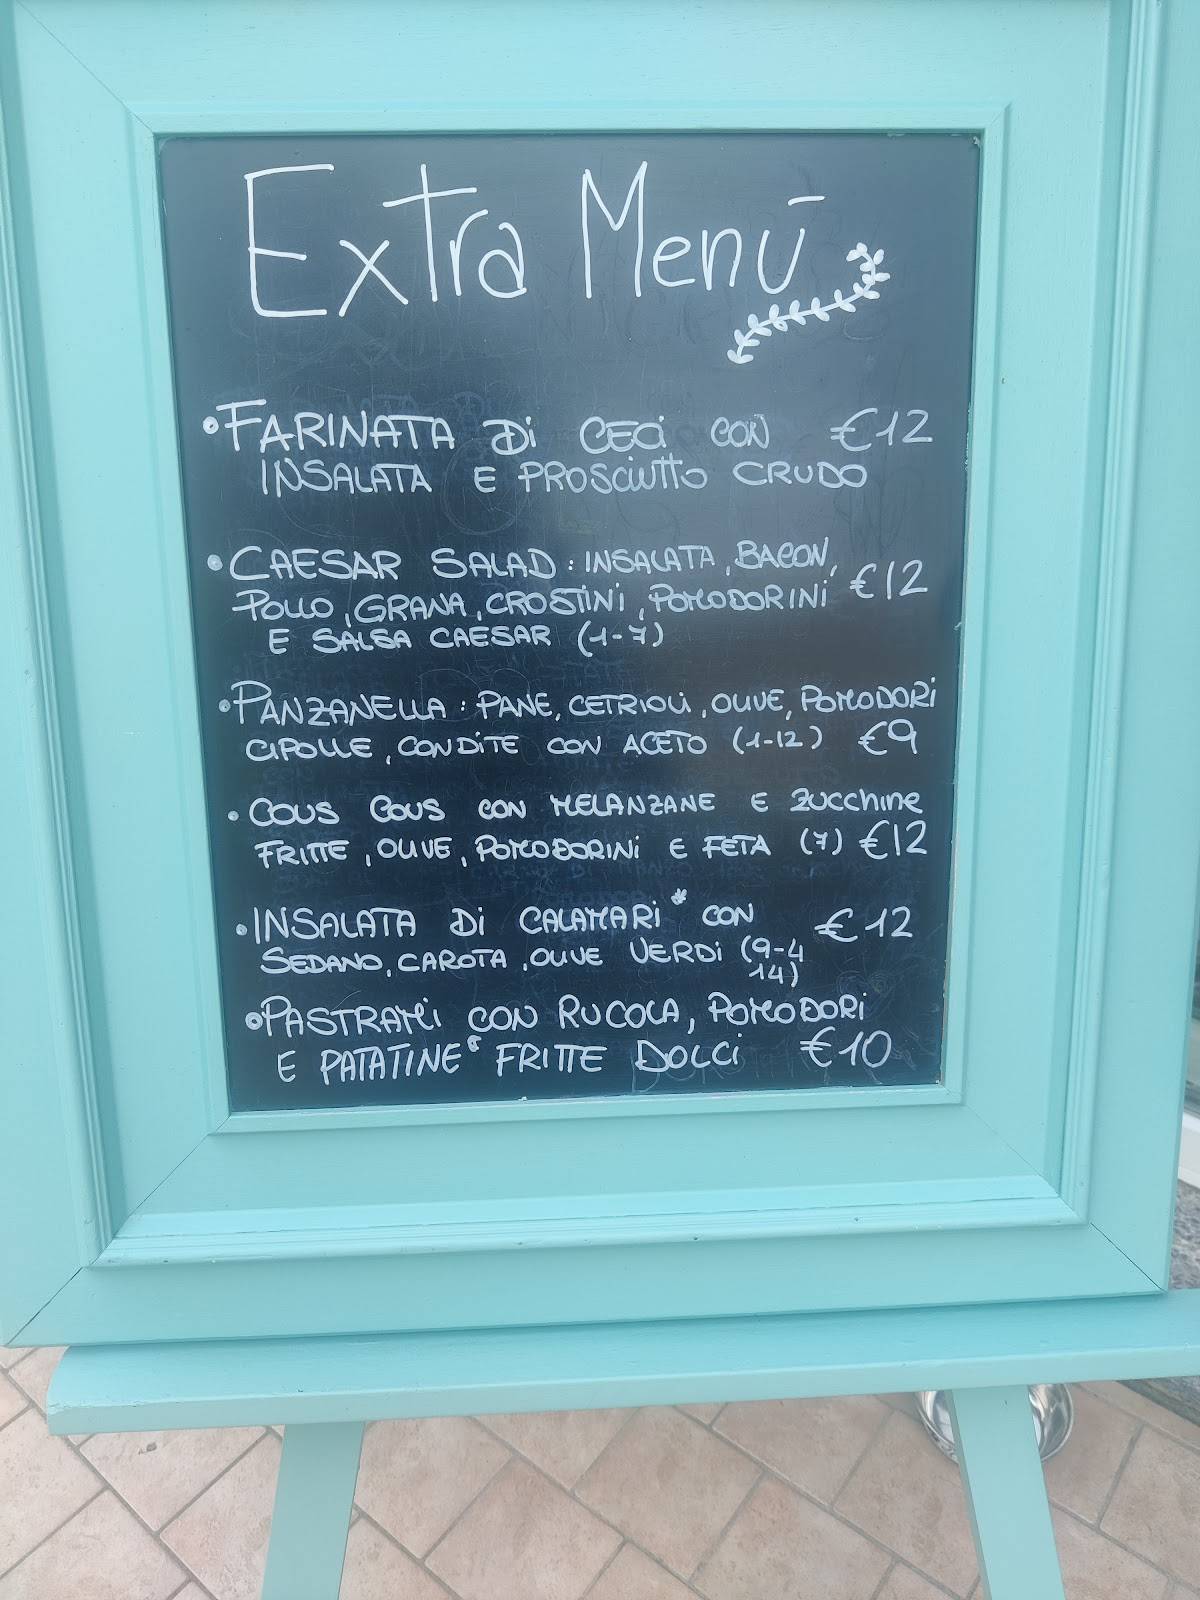 Extra Menū
•FARINATA Di CECi CON €12
INSALATA E PROSCIUTTO CRUDO
•CAESAR SALAD: INSALATA, BACON,
POLLO, GRANA, CROSTINI, POMODORINI €12
E SALSA CAESAR (1-7)
•PANZANELLA: PANE, CETRIOLI, OLIVE, POMODORI
CIPOLLE, CONDITE CON ACETO (1-12) €9
•COUS COUS CON MELANZANE E Zucchine
FRITTE, OLIVE, POMODORINI E FETA (7) €12
•INSALATA Di CALAMARI* CON €12
SEDANO, CAROTA, OLIVE VERDI (9-4
14)
•PASTRAMI CON RUCOLA, POMODORI
E PATATINE* FRITTE DOLCI €10